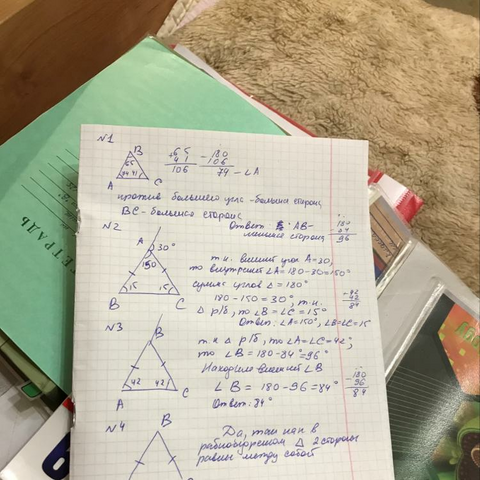 ТЕТРАДЬ
№1
B
65
74 41
A C
+65
41
106
-180
106
74 - ∠A
против большего угла - большая сторона
BC - большая сторона
Ответ : AB -
меньшая сторона
180
84
96
№2
A 30°
150
15 15
B C
т.к. внешний угол A=30,
то внутренний ∠A = 180-30=150°
сумма углов △ = 180°
180-150=30°, т.к.
△ р/б, то ∠B = ∠C = 15°
Ответ: ∠A=150°, ∠B=∠C=15
42
42
84
№3
B
42 42
A C
т.к △ р/б, то ∠A=∠C=42°,
то ∠B = 180-84°=96°
Находим внешний ∠B
∠B = 180-96=84°
Ответ: 84°
180
96
84
№4
B
Да, так как в
равнобедренном △ 2 стороны
равны между собой